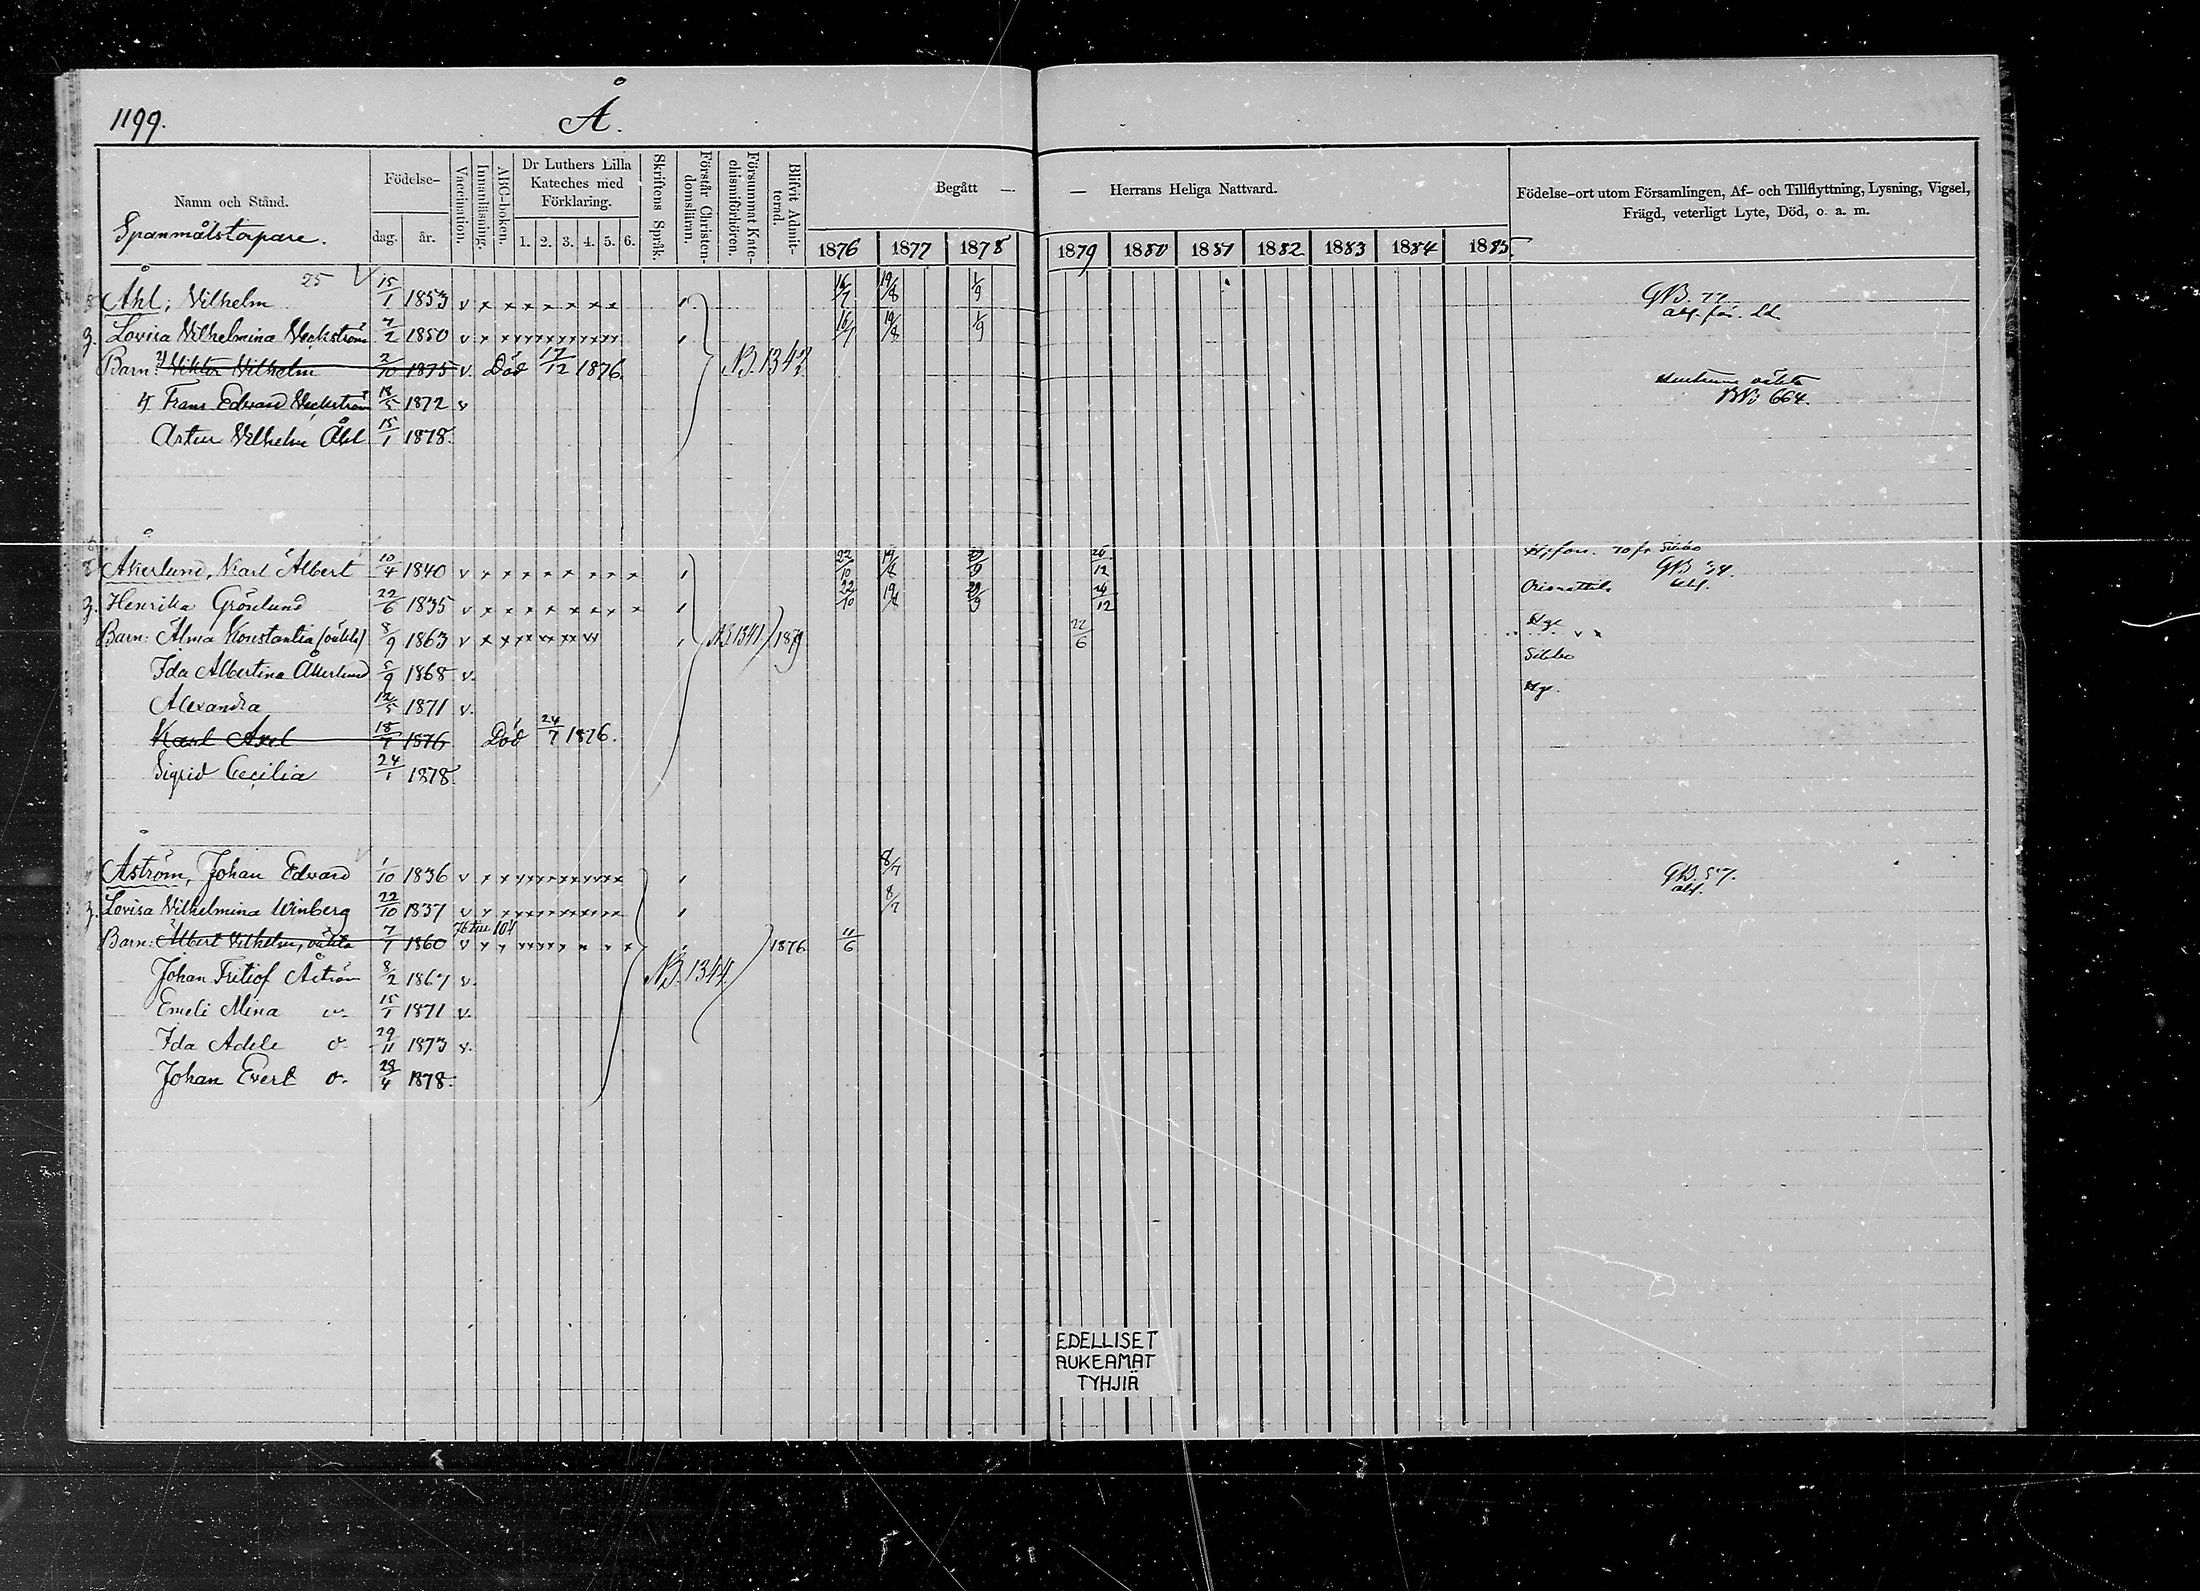 1199.
Å.
Namn och Stånd.
Födelse-
dag.
år.
Vaccination.
Innanläsning.
ABC-boken.
Dr Luthers Lilla Kateches med Förklaring.
1. 2. 3. 4. 5. 6.
Skriftens Språk.
Förstår Christendomsläran.
Försummat Katechismiförhören.
Blifvit Admitterad.
Begått — — Herrans Heliga Nattvard.
1876 1877 1878 1879 1880 1881 1882 1883 1884 1885.
Födelse-ort utom Församlingen, Af- och Tillflyttning, Lysning, Vigsel,
Frägd, veterligt Lyte, Död, o. a. m.
Spanmålstorpare.
25
Åhl, Vilhelm 15/1 1853 v x x x x x x x x 16/7 19/8 1/9 GB. 77
Lovisa Vilhelmina Weckström 7/2 1850 v x x x x x x x x x 16/7 19/8 1/9
Barn: Viktor Vilhelm 2/10 1875 v. Död 17/12 1876.
Frans Edvard Weckström 18/5 1872 v 664.
Artur Vilhelm Åhl 15/1 1878.
Åkerlund, Karl Albert 10/4 1840 v x x x x x x x x 22/10 19/8 29/9 26/12
Henrika Grönlund 22/6 1835 v x x x x x x x x 22/10 19/8 29/9 26/12
Barn: Alma Konstantia (oäkta) 8/9 1863 v x x x xx xx xx NB. 1341. 1879 22/6
Ida Albertina Åkerlund 5/9 1868 v. Sibbo
Alexandra 12/5 1871 v.
Karl Axel 18/7 1876 Död 24/7 1876.
Sigrid Cecilia 24/1 1878.
Åström, Johan Edvard 1/10 1836 v x x xxxxxxxxxx 8/7 GB. 57.
Lovisa Vilhelmina Winberg 22/10 1837 v x xxxxxxxxxx 8/7
Barn: Albert Vilhelm, oäkta 7/7 1860 v x x xxxxx x x x x 1876 11/6
Johan Fritiof Åström 8/2 1867 v. NB. 1344.
Emeli Mina 15/1 1871 v.
Ida Adele 29/11 1873 v.
Johan Evert 29/4 1878.
EDELLISET
AUKEAMAT
TYHJIÄ